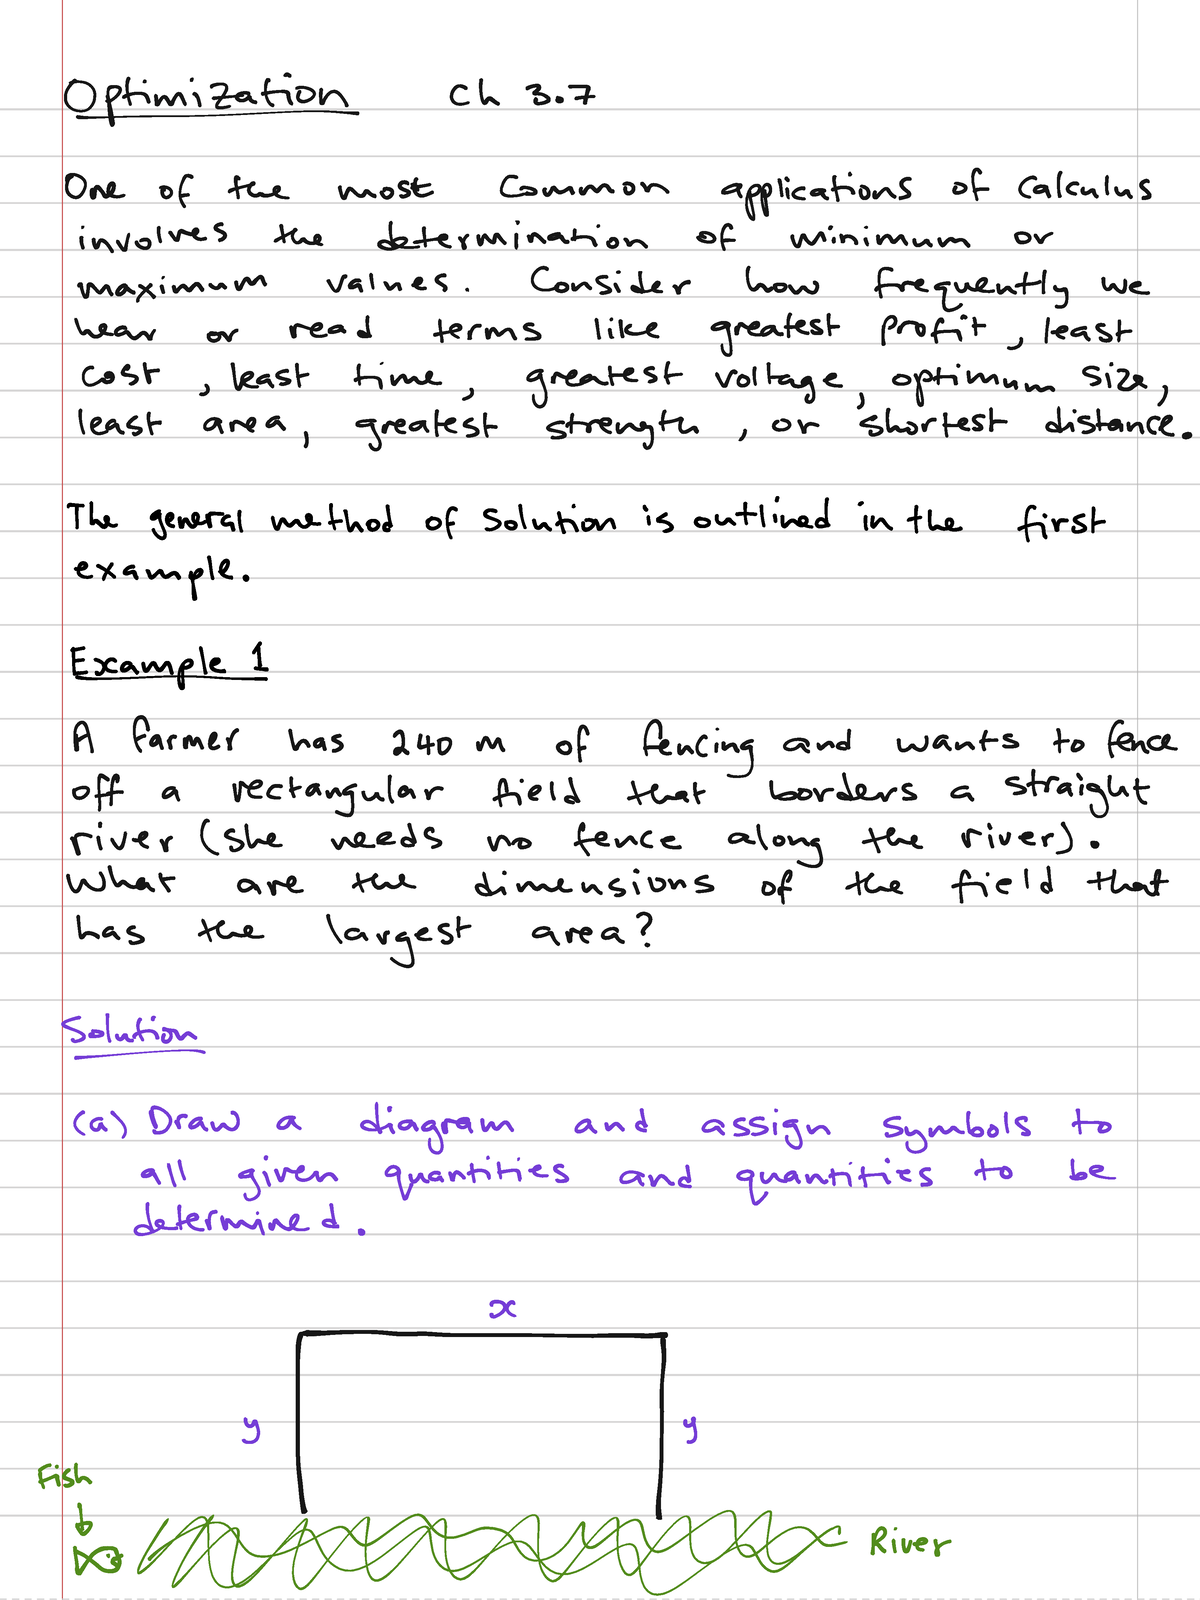 Optimization Ch 3.7
One of the most common applications of calculus
involves the determination of minimum or
maximum values. Consider how frequently we
hear or read terms like greatest profit, least
cost, least time, greatest voltage, optimum size,
least area, greatest strength, or shortest distance.
The general method of solution is outlined in the first
example.
Example 1
A farmer has 240 m of fencing and wants to fence
off a rectangular field that borders a straight
river (she needs no fence along the river).
What are the dimensions of the field that
has the largest area?
Solution
(a) Draw a diagram and assign symbols to
all given quantities and quantities to be
determined.
x
y y
Fish
River